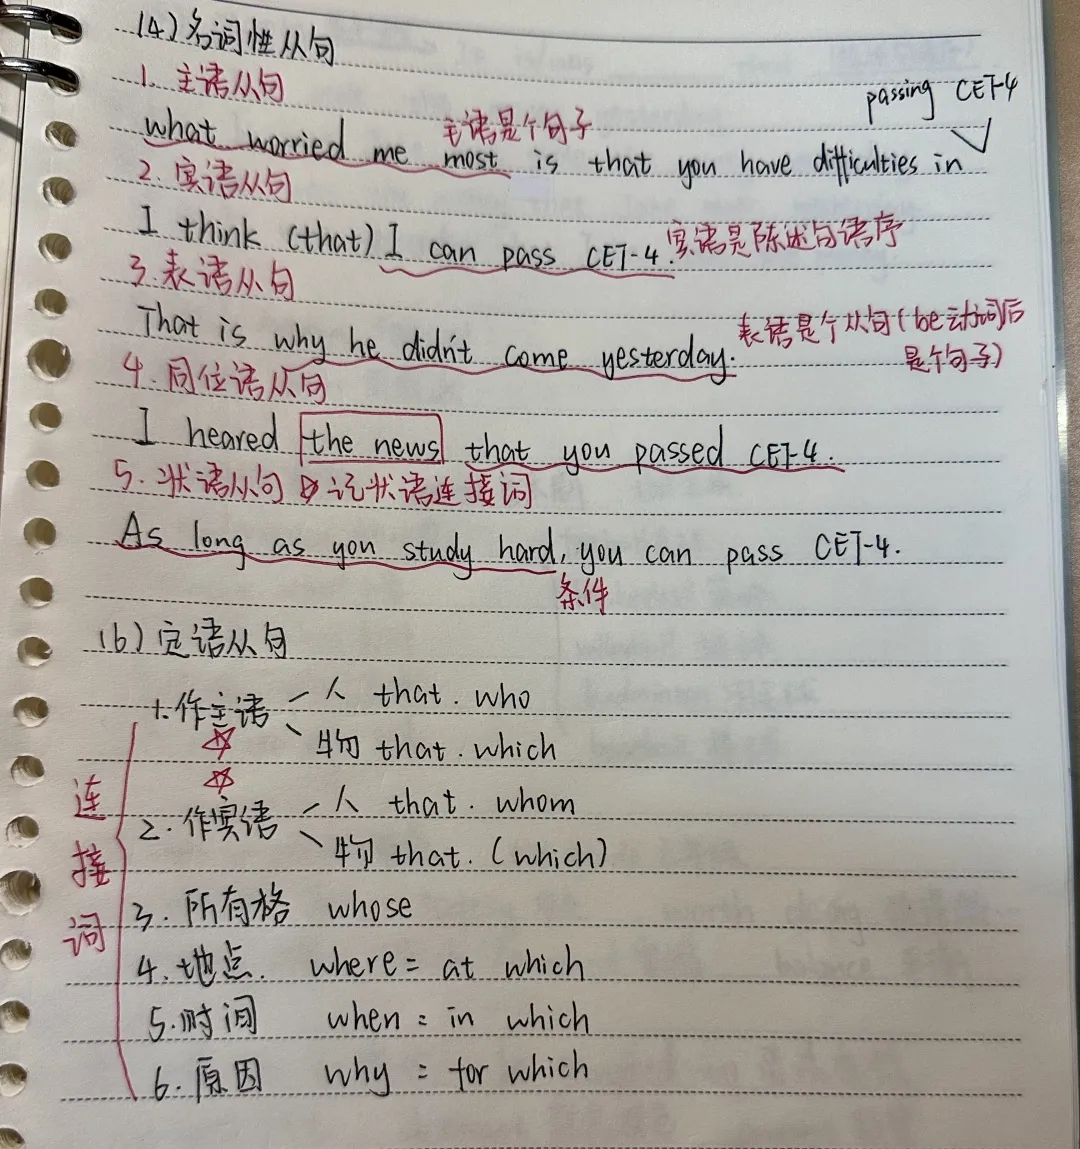 (4) 名词性从句
1. 主语从句
passing CET-4
what worried me most is that you have difficulties in
主语是个句子
2. 宾语从句
I think (that) I can pass CET-4. 宾语是陈述句语序
3. 表语从句
That is why he didn't come yesterday. 表语是个从句(be动词后
是个句子)
4. 同位语从句
I heared the news that you passed CET-4.
5. 状语从句 记状语连接词
As long as you study hard, you can pass CET-4.
条件
(b) 定语从句
1. 作主语 人 that. who
物 that. which
连接词
2. 作宾语 人 that. whom
物 that. (which)
3. 所有格 whose
4. 地点. where = at which
5. 时间 when = in which
6. 原因 why = for which